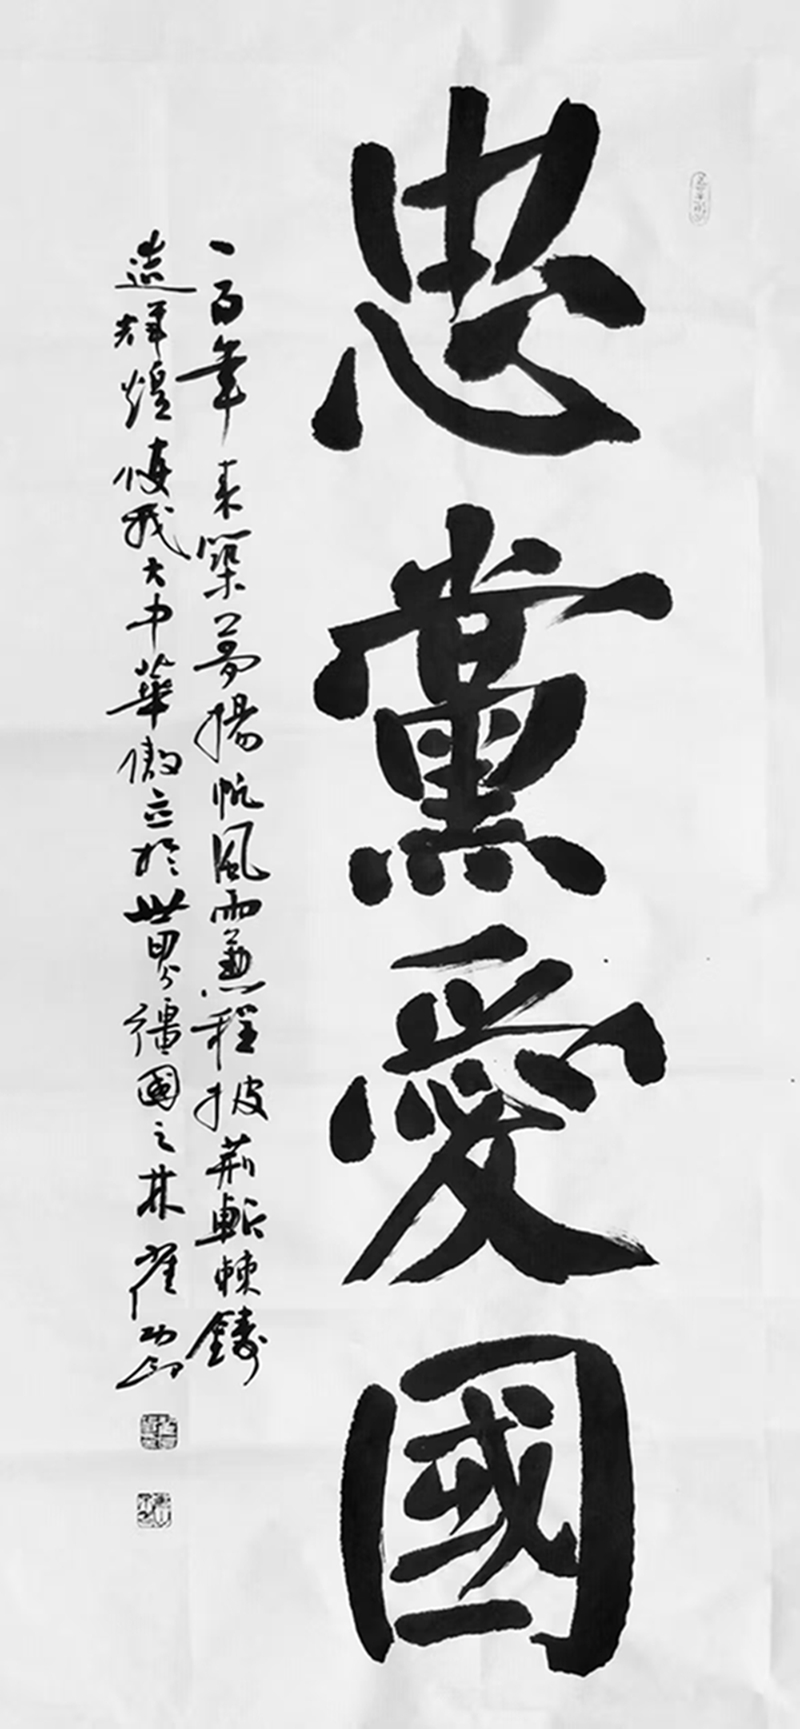 忠黨愛國
一百年来築夢揚帆風雨兼程披荆斬棘鑄
造輝煌使我大中華傲立於世界彊國之林崔